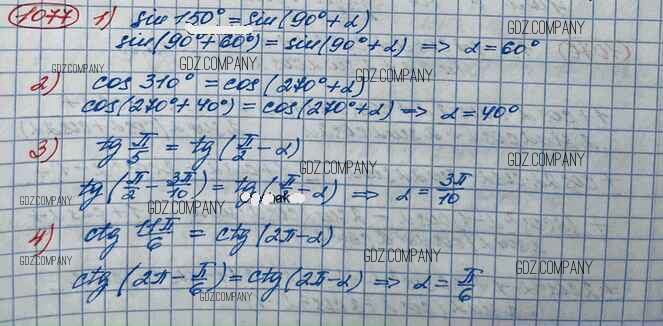 1077 1) sin 150° = sin(90°+α)
sin(90°+60°) = sin(90°+α) => α = 60°
2) cos 310° = cos(270°+α)
cos(270°+40°) = cos(270°+α) => α = 40°
3) tg π/5 = tg(π/2 - α)
tg(π/2 - 3π/10) = tg(π/2 - α) => α = 3π/10
4) ctg 11π/6 = ctg(2π - α)
ctg(2π - π/6) = ctg(2π - α) => α = π/6
GDZ.COMPANY
GDZ.COMPANY
GDZ.COMPANY
GDZ.COMPANY
GDZ.COMPANY
GDZ.COMPANY
GDZ.COMPANY
GDZ.COMPANY
GDZ.COMPANY
GDZ.COMPANY
GDZ.COMPANY
GDZ.COMPANY